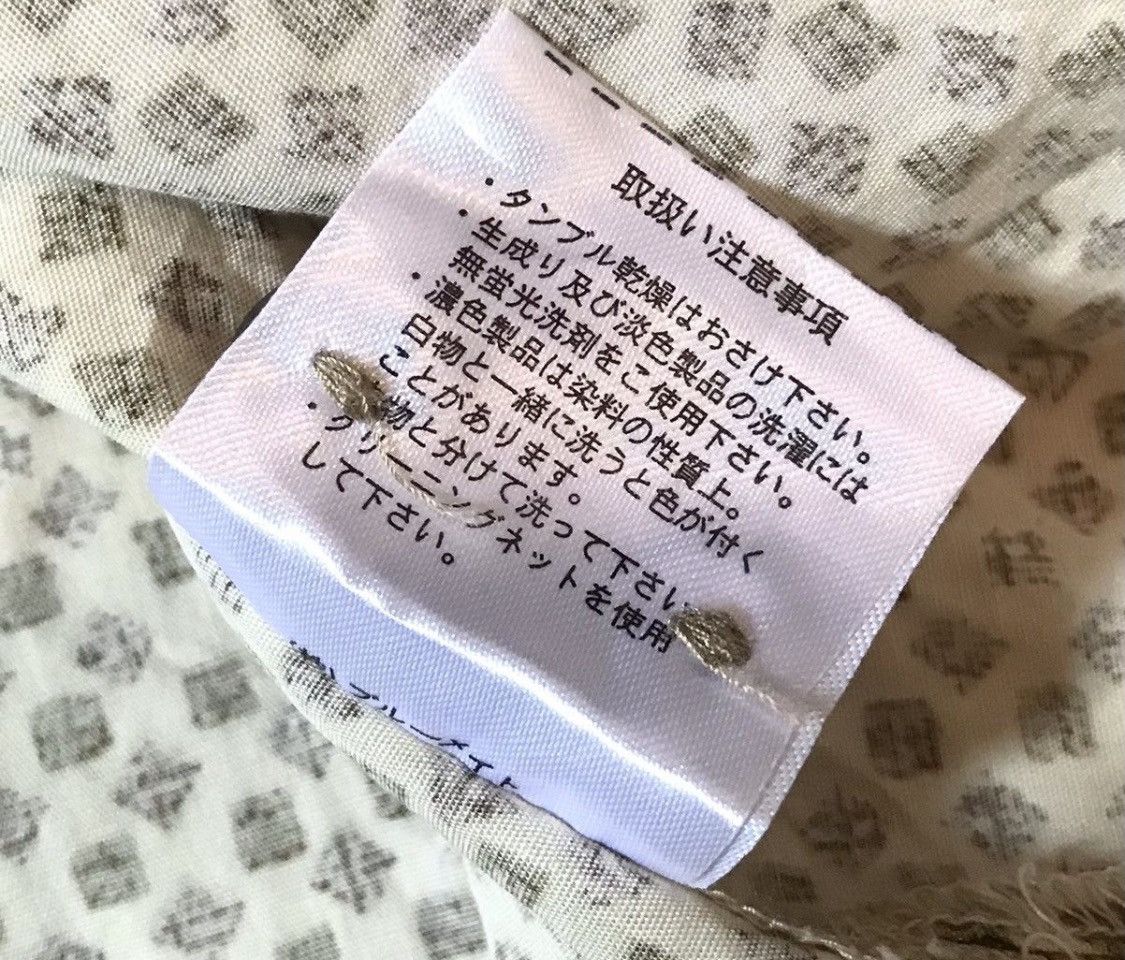 取扱い注意事項
・タンブル乾燥はおさけ下さい。
・生成り及び淡色製品の洗濯には
無蛍光洗剤をご使用下さい。
・濃色製品は染料の性質上。
白物と一緒に洗うと色が付く
ことがあります。
物と分けて洗って下さい
・クリーニングネットを使用
して下さい。